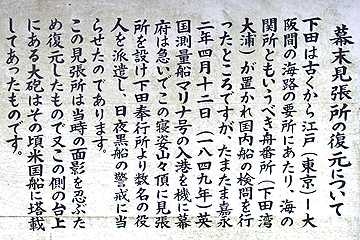 幕末見張所の復元について
下田は古くから江戸(東京)ー大
阪間の海路の要所にあたり、海の
関所ともいうべき舟番所(下田湾
大浦)が置かれ国内船の検問を行
ったところですが、たまたま嘉永
二年四月十二日(一八四九年)英
国測量船マリナ号の入港を機に幕
府は急いでこの寝姿山々頂に見張
所を設け下田奉行所より数名の役
人を派遣し、日夜黒船の警戒に当
らせたのであります。
この見張所は当時の面影を忍ぶた
め復元したもので又この側の台上
にある大砲はその頃米国船に塔載
してあったものです。